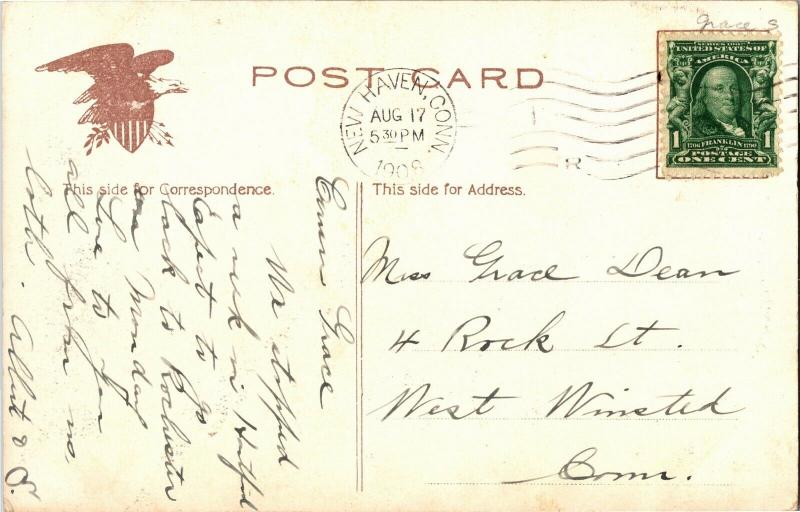 Grace S
SERIES 1902
UNITED STATES OF
AMERICA
1706 FRANKLIN 1790
1 POSTAGE 1
ONE CENT
POST CARD
NEW HAVEN, CONN.
AUG 17
5 30 PM
1908
R
This side for Correspondence.
This side for Address.
Miss Grace Dean
4 Rock St.
West Winsted
Conn.
Grace
We stopped
a week in Hartford
Expect to go
back to Rochester
on Monday
Love to you
all from us
both. Albert &